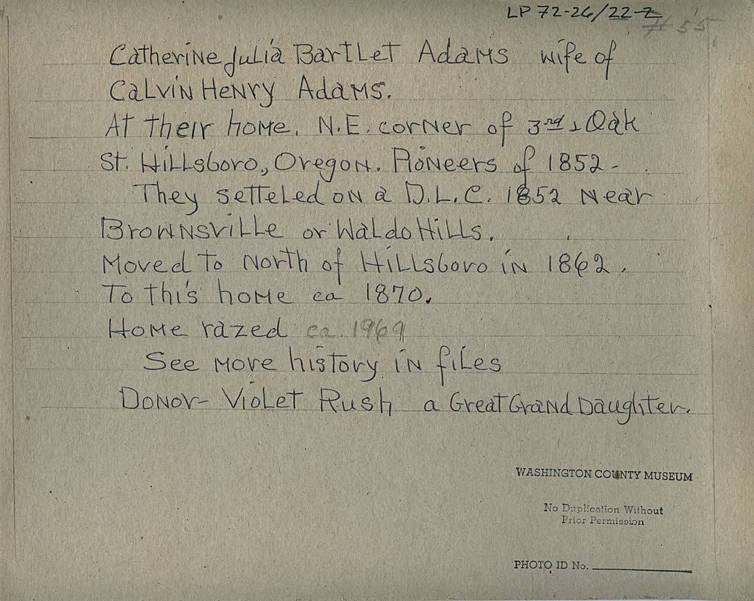 LP 72-26/22-2
#55
Catherine Julia Bartlet Adams wife of
Calvin Henry Adams.
At their home. N.E. corner of 3rd & Oak
St. Hillsboro, Oregon. Pioneers of 1852-
They setteled on a D.L.C. 1852 near
Brownsville or Waldo Hills.
Moved to North of Hillsboro in 1862.
To this home ca 1870.
Home razed ca. 1969
See more history in files
Donor- Violet Rush a Great Grand Daughter.
WASHINGTON COUNTY MUSEUM
No Duplication Without
Prior Permission
PHOTO ID No.